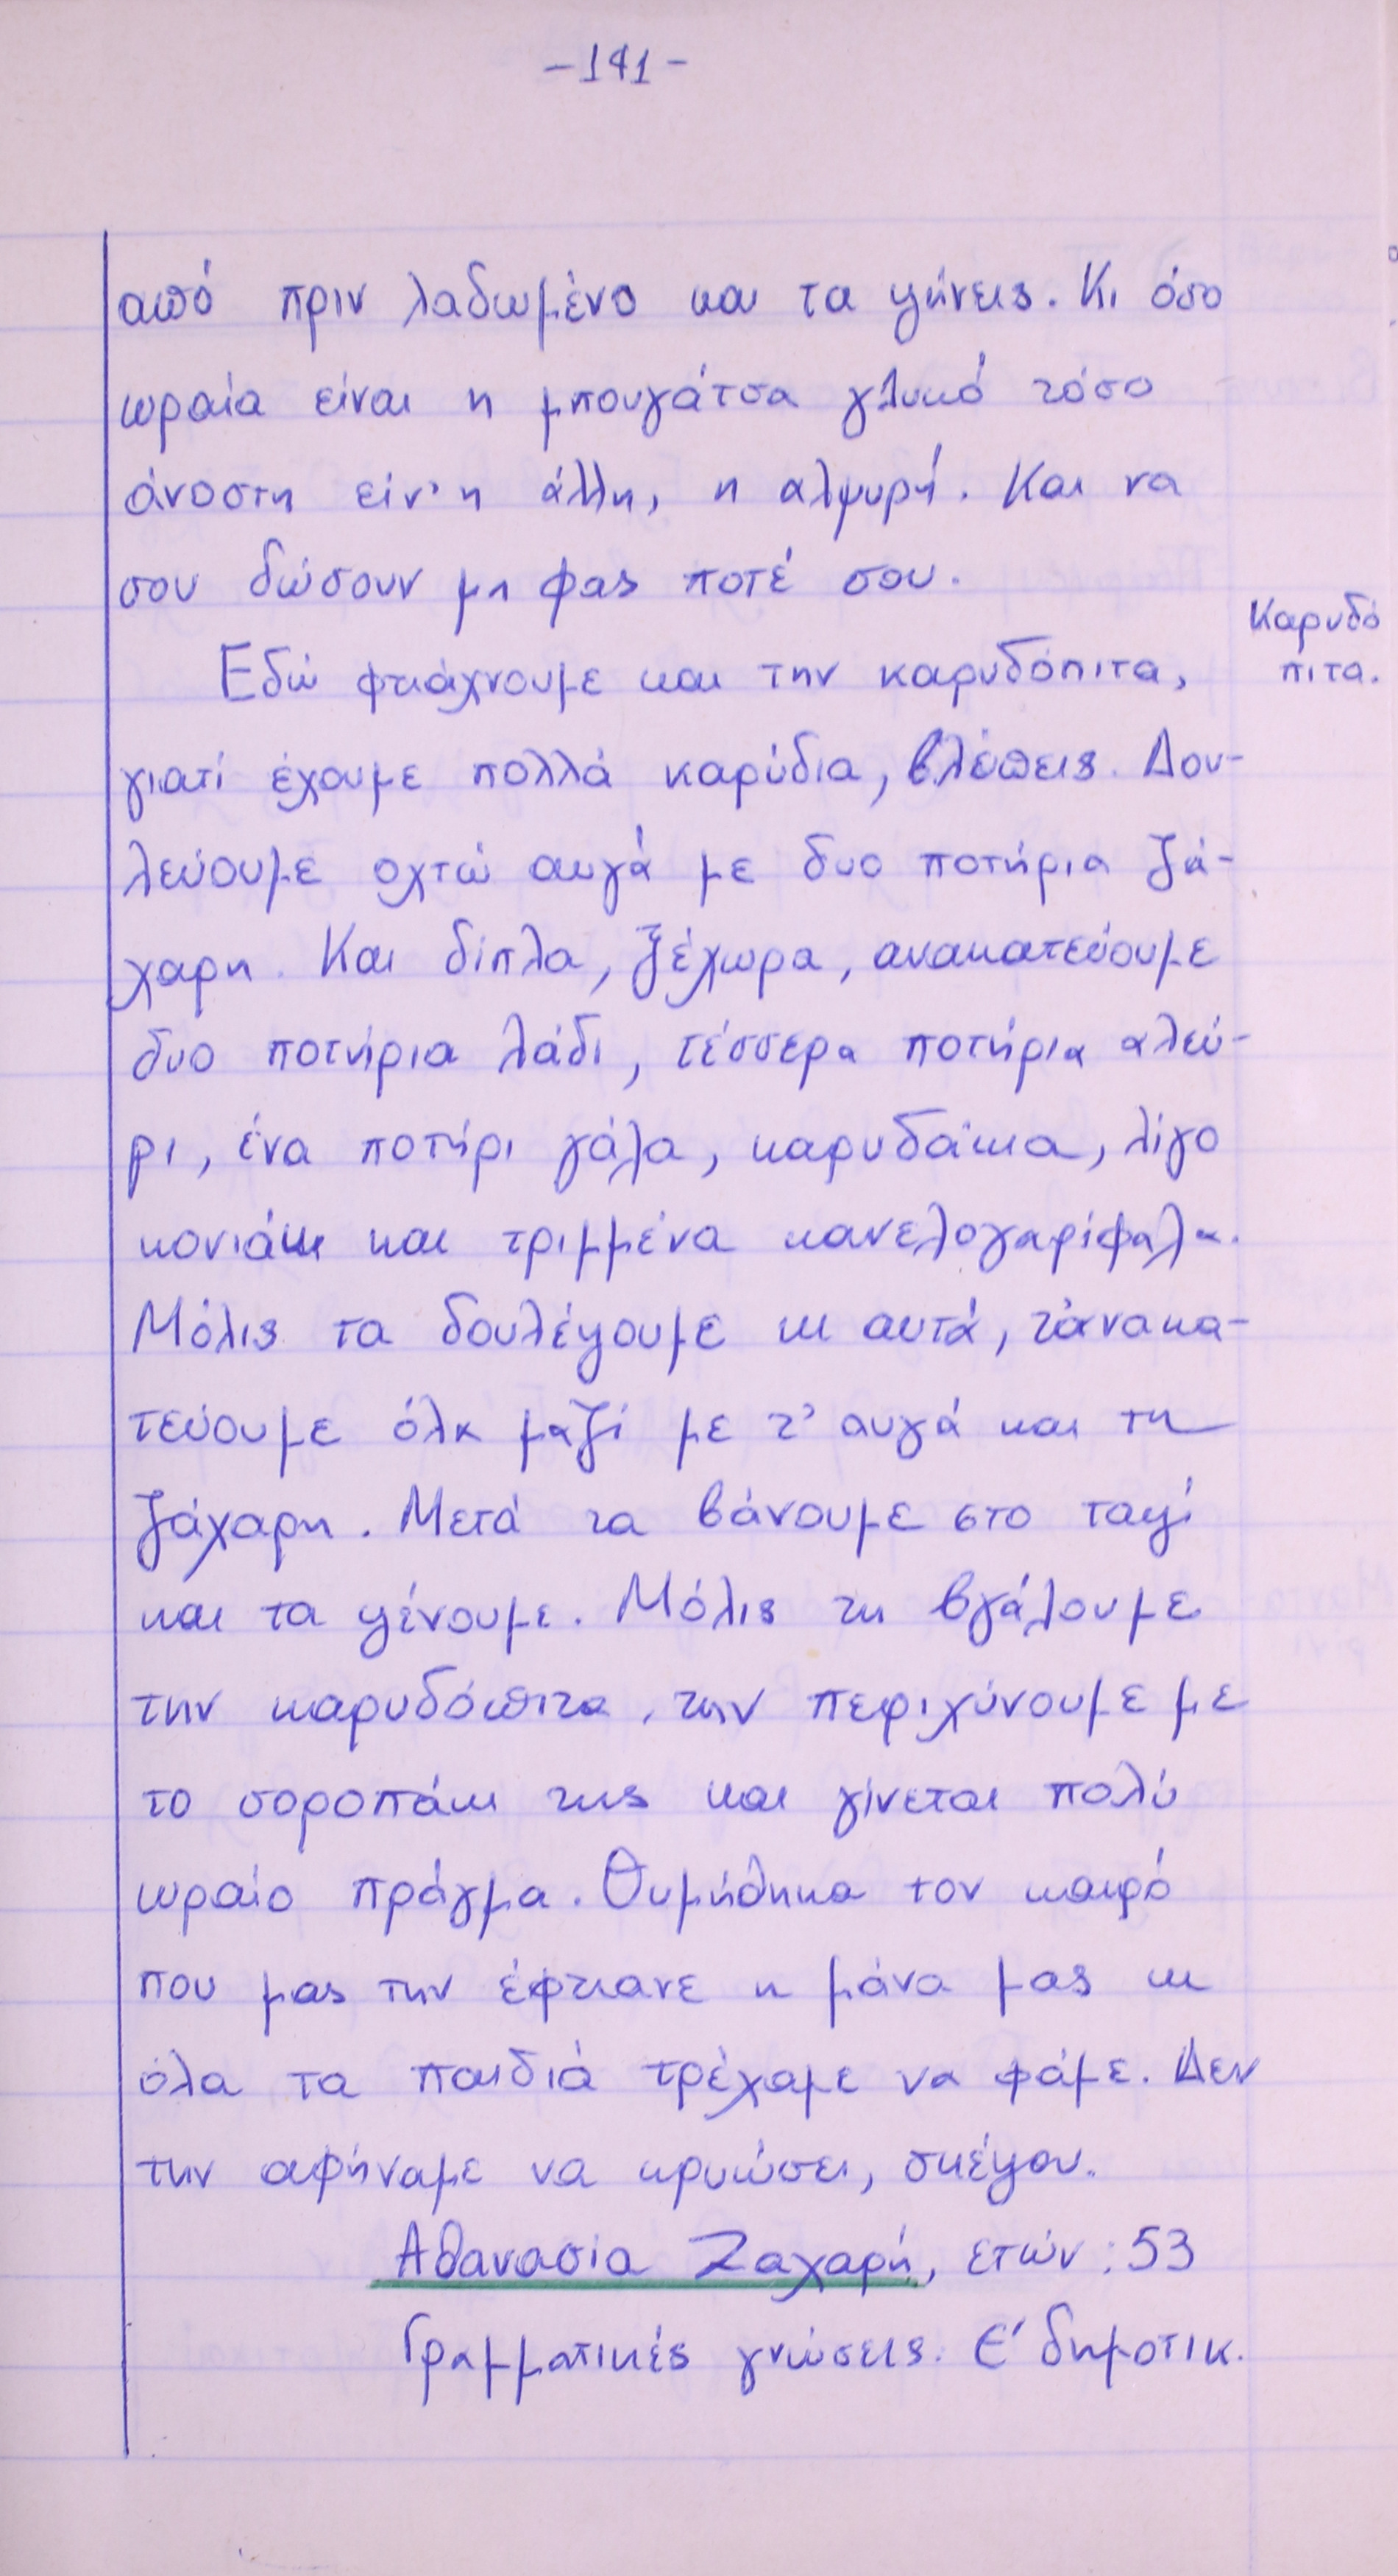 -141-
από πριν λαδωμένο και τα ψήνεις. Κι όσο
ωραία είναι η μπουγάτσα γλυκό τόσο
άνοστη είν' η άλλη, η αλμυρή. Και να
σου δώσουν μη φας ποτέ σου.
Εδώ φτιάχνουμε και την καρυδόπιτα,
Καρυδό
πιτα.
γιατί έχουμε πολλά καρύδια, βλέπεις. Δου-
λεύουμε οχτώ αυγά με δυο ποτήρια ζά-
χαρη. Και δίπλα, ξέχωρα, ανακατεύουμε
δυο ποτήρια λάδι, τέσσερα ποτήρια αλεύ-
ρι, ένα ποτήρι γάλα, καρυδάκια, λίγο
κονιάκ και τριμμένα κανελογαρίφαλα.
Μόλις τα δουλέψουμε κι αυτά, τ' ανακα-
τεύουμε όλα μαζί με τ' αυγά και τη
ζάχαρη. Μετά τα βάνουμε στο ταψί
και τα ψένουμε. Μόλις τη βγάλουμε
την καρυδόπιτα, την περιχύνουμε με
το σοροπάκι της και γίνεται πολύ
ωραίο πράγμα. Θυμήθηκα τον καιρό
που μας την έφτιανε η μάνα μας κι
όλα τα παιδιά τρέχαμε να φάμε. Δεν
την αφήναμε να κρυώσει, σκέψου.
Αθανασία Ζαχαρή, ετών: 53
Γραμματικές γνώσεις: Ε' δημοτικ.